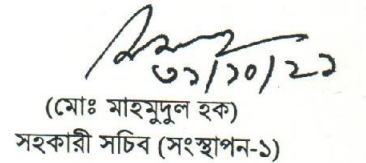 ৩১/১০/২১
(মোঃ মাহমুদুল হক)
সহকারী সচিব (সংস্থাপন-১)